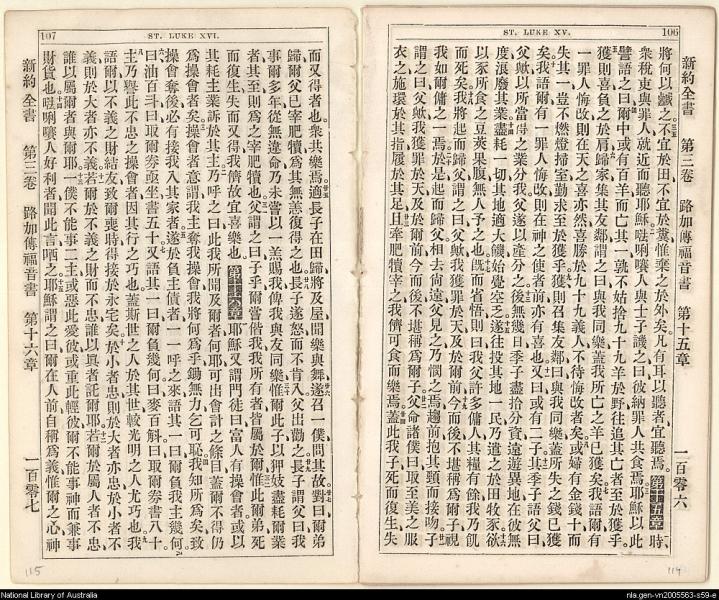 106
ST. LUKE XV.
新約全書 第三卷 路加傳福音書 第十五章 一百零六
將何以鹹之不宜於田不宜於糞惟棄之於外矣凡有耳以聽者宜聽焉第十五章時
衆稅吏與罪人就近而聽耶穌唎人與士子譏之曰彼納罪人共食焉耶穌以此
譬語之曰爾中或有百羊而亡其一孰不姑捨九十九羊於野往追其亡者至於獲乎
獲則喜負之於肩歸家集其友鄰謂之曰與我同樂蓋我所亡之羊已獲矣我語爾有
一罪人悔改則在天之喜亦然喜勝於九十九義人不待悔改者矣或婦有金錢十而
失其一豈不燃燈掃室勤求至於獲乎獲則召集友鄰曰與我同樂蓋所失之錢已獲
矣我語爾有一罪人悔改則在神之使者前亦有喜也又曰或有二子其季子語父曰
父歟以所當得之業分我父遂以產分之後無幾日季子盡拾分資遠遊異地在彼無
度浪廢其業盡耗一切其地適大饑始覺空乏遂往投其地一民乃遣之於田牧豕欲
以豕所食之豆莢果腹無人予之也旣而省悟則曰我父許多傭人其糧有餘我乃飢
而死矣我將起而歸父謂之曰父歟我獲罪於天及於爾前今而後不堪稱爲爾子視
我如爾傭之一焉於是起而歸父相去尙遠父見之乃憫之焉趨前抱其頸而接吻子
謂之曰父歟我獲罪於天及於爾前今而後不堪稱爲爾子父命諸僕曰取至美之服
衣之施環於其指履於其足且牽肥犢宰之我儕可食而樂焉蓋此我子死而復生失
114
107
ST. LUKE XVI.
而又得者也衆共樂焉適長子在田歸將及屋聞樂與舞遂召一僕問其故對曰爾弟
歸爾父已宰肥犢爲其無恙復得之也長子遂怒而不肯入父出勸之長子謂父曰我
事爾多年從無違命乃未嘗以一羔賜我俾我與友同樂惟爾此子以狎妓盡耗爾業
者其至則爲之宰肥犢也父謂之曰子乎爾嘗偕我我所有者皆屬於爾惟此爾弟死
而復生失而又得我儕故宜喜樂也第十六章耶穌又謂門徒曰富人有操會者或以
其耗主業訴於其主乃呼之曰此我所聞及爾者何耶可出會計之條目蓋爾不得仍
爲操會者矣操會者意謂我主奪我操會我將何爲乎鋤無力乞可恥我知所爲矣致
操會奪後必有接我入其家者遂於負主債者一一呼之來語其一曰爾負我主幾何
曰油百斗曰取爾券亟坐書五十又語其一曰爾負幾何曰麥百斛曰取爾券書八十
主乃譽此不忠之操會者因其行之巧也蓋斯世之人於其世較光明之人尤巧也我
語爾以不義之財結友致爾喪時得接於永宅矣於小者忠則於大者亦忠於小者不
義則於大者亦不義若爾於不義之財而不忠誰以眞者託爾耶若爾於屬人者不忠
誰以屬爾者與爾耶一僕不能事二主或惡此愛彼或重此輕彼爾不能事神而兼事
財貨也唎人好利者聞此言哂之耶穌謂之曰爾在人前自稱爲義惟爾之心神
新約全書 第三卷 路加傳福音書 第十六章 一百零七
115
National Library of Australia
nla.gen-vn2005563-s59-e